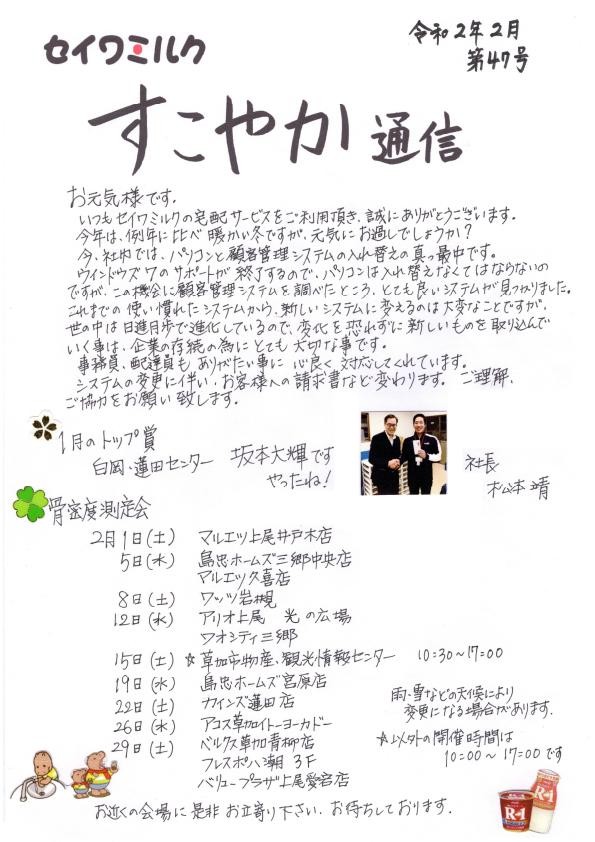 セイワミルク
令和2年2月
第47号
すこやか通信
お元気様です。
いつもセイワミルクの宅配サービスをご利用頂き、誠にありがとうございます。
今年は、例年に比べ暖かい冬ですが、元気にお過しでしょうか？
今、社内では、パソコンと顧客管理システムの入れ替えの真っ最中です。
ウインドウズ7のサポートが終了するので、パソコンは入れ替えなくてはならないの
ですが、この機会に顧客管理システムを調べたところ、とても良いシステムが見つかりました。
これまでの使い慣れたシステムから、新しいシステムに変えるのは大変なことですが、
世の中は日進月歩で進化しているので、変化を恐れずに新しいものを取り込んで
いく事は、企業の存続の為にとても大切な事です。
事務員、配達員も、ありがたい事に心良く対応してくれています。
システムの変更に伴い、お客様への請求書など変わります。ご理解、
ご協力をお願い致します。
1月のトップ賞
白岡・蓮田センター 坂本大輝です
やったね！
社長
松本靖
骨密度測定会
2月1日(土) マルエツ上尾井戸木店
5日(水) 島忠ホームズ三郷中央店
マルエツ久喜店
8日(土) ワッツ岩槻
12日(水) アリオ上尾 光の広場
ワオシティ三郷
15日(土) ☆草加市物産、観光情報センター 10:30～17:00
19日(水) 島忠ホームズ宮原店
22日(土) カインズ蓮田店
26日(水) アコス草加イトーヨーカドー
29日(土) ベルクス草加青柳店
フレスポ八潮 3F
バリュープラザ上尾愛宕店
雨・雪などの天候により
変更になる場合があります。
☆以外の開催時間は
10:00～17:00です
お近くの会場に是非お立寄り下さい。お待ちしております。
R-1
R-1